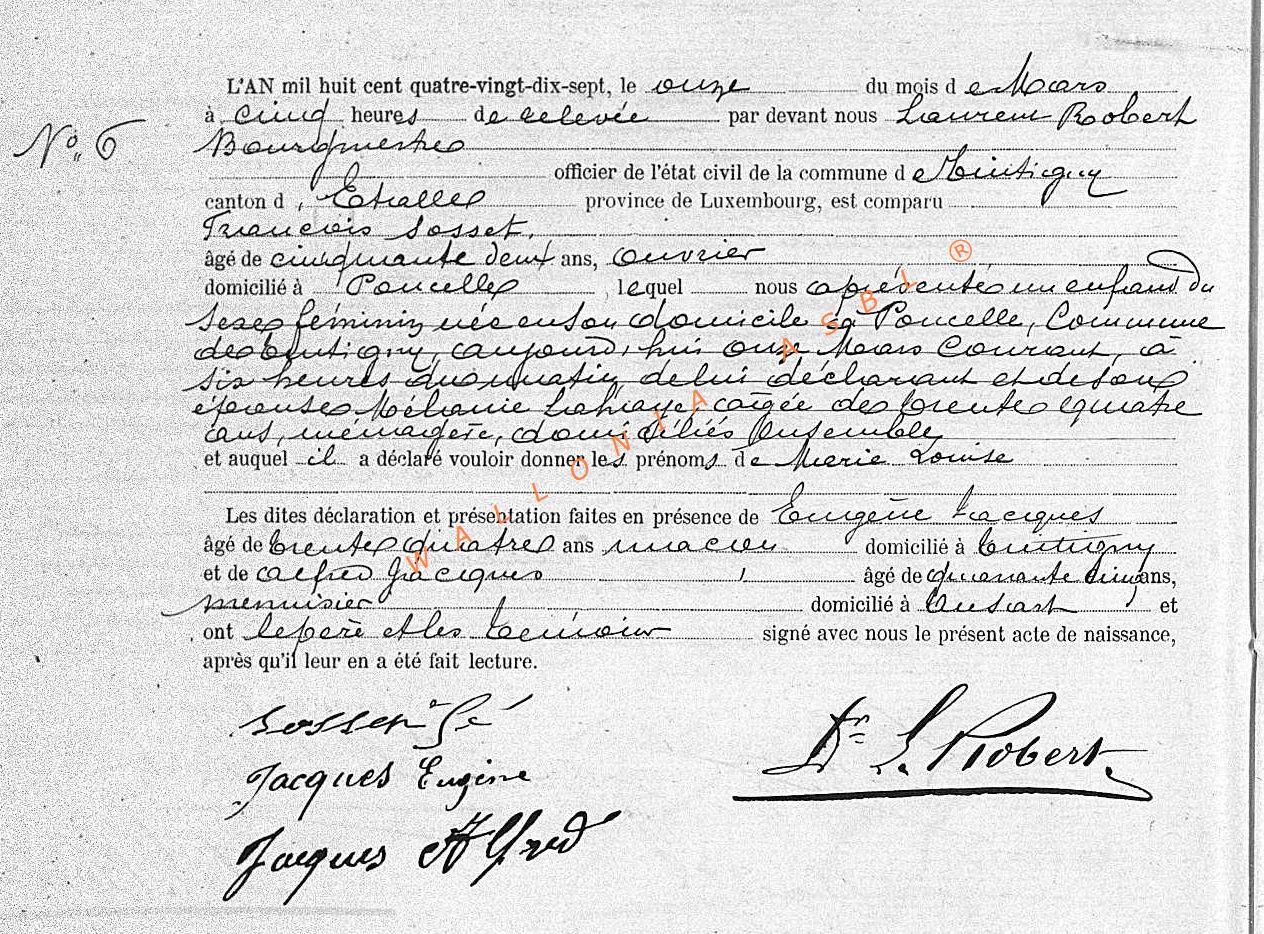 L'AN mil huit cent quatre-vingt-dix-sept, le onze du mois de Mars
à cinq heures de relevée par devant nous Laurent Robert
No 6
Bourgmestre
officier de l'état civil de la commune de Tintigny
canton d' Etalle province de Luxembourg, est comparu
François Sosset,
âgé de cinquante deux ans, ouvrier
domicilié à Poncelle, lequel nous a présenté un enfant du
sexe féminin née en son domicile à Poncelle, Commune
de Tintigny, aujourd'hui onze Mars Courant, à
six heures du matin, de lui déclarant et de son
épouse Mélanie Lahaye, âgée de trente quatre
ans, ménagère, domiciliés Ensemble
et auquel il a déclaré vouloir donner les prénoms de Marie Louise
Les dites déclaration et présentation faites en présence de Eugène Jacques
âgé de trente quatre ans maçon domicilié à Tintigny
et de Alfred Jacques, âgé de quarante cinq ans,
menuisier domicilié à Ansart, et
ont le père et les témoins signé avec nous le présent acte de naissance,
après qu'il leur en a été fait lecture.
Sosset
Dr L. Robert
Jacques Eugène
Jacques Alfred
WALLONIA ASBL ®